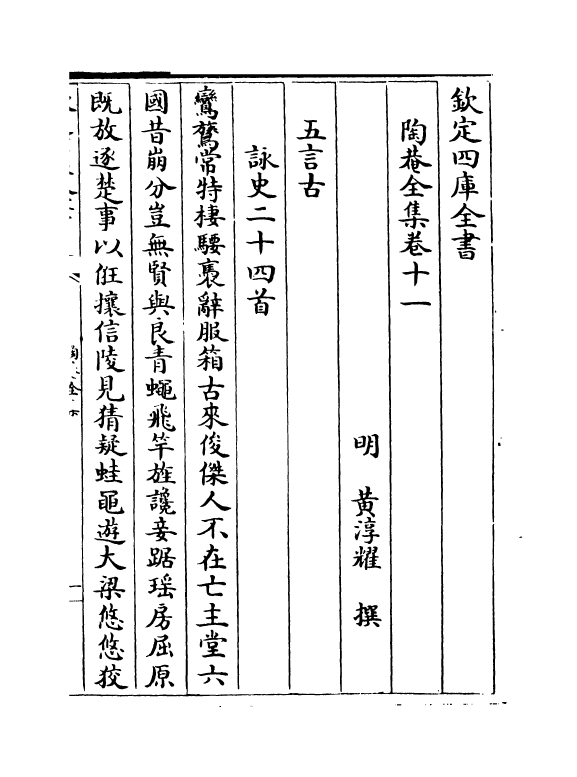 欽定四庫全書
陶菴全集卷十一
明 黄淳耀 撰
五言古
詠史二十四首
鸞鶱常特棲騕褭辭服箱古來俊傑人不在亡主堂六
國昔崩分豈無賢與良青蠅飛竿旌讒妾踞瑶房屈原
既放逐楚事以佂攘信陵見猜疑蛙黽遊大梁悠悠狡
一